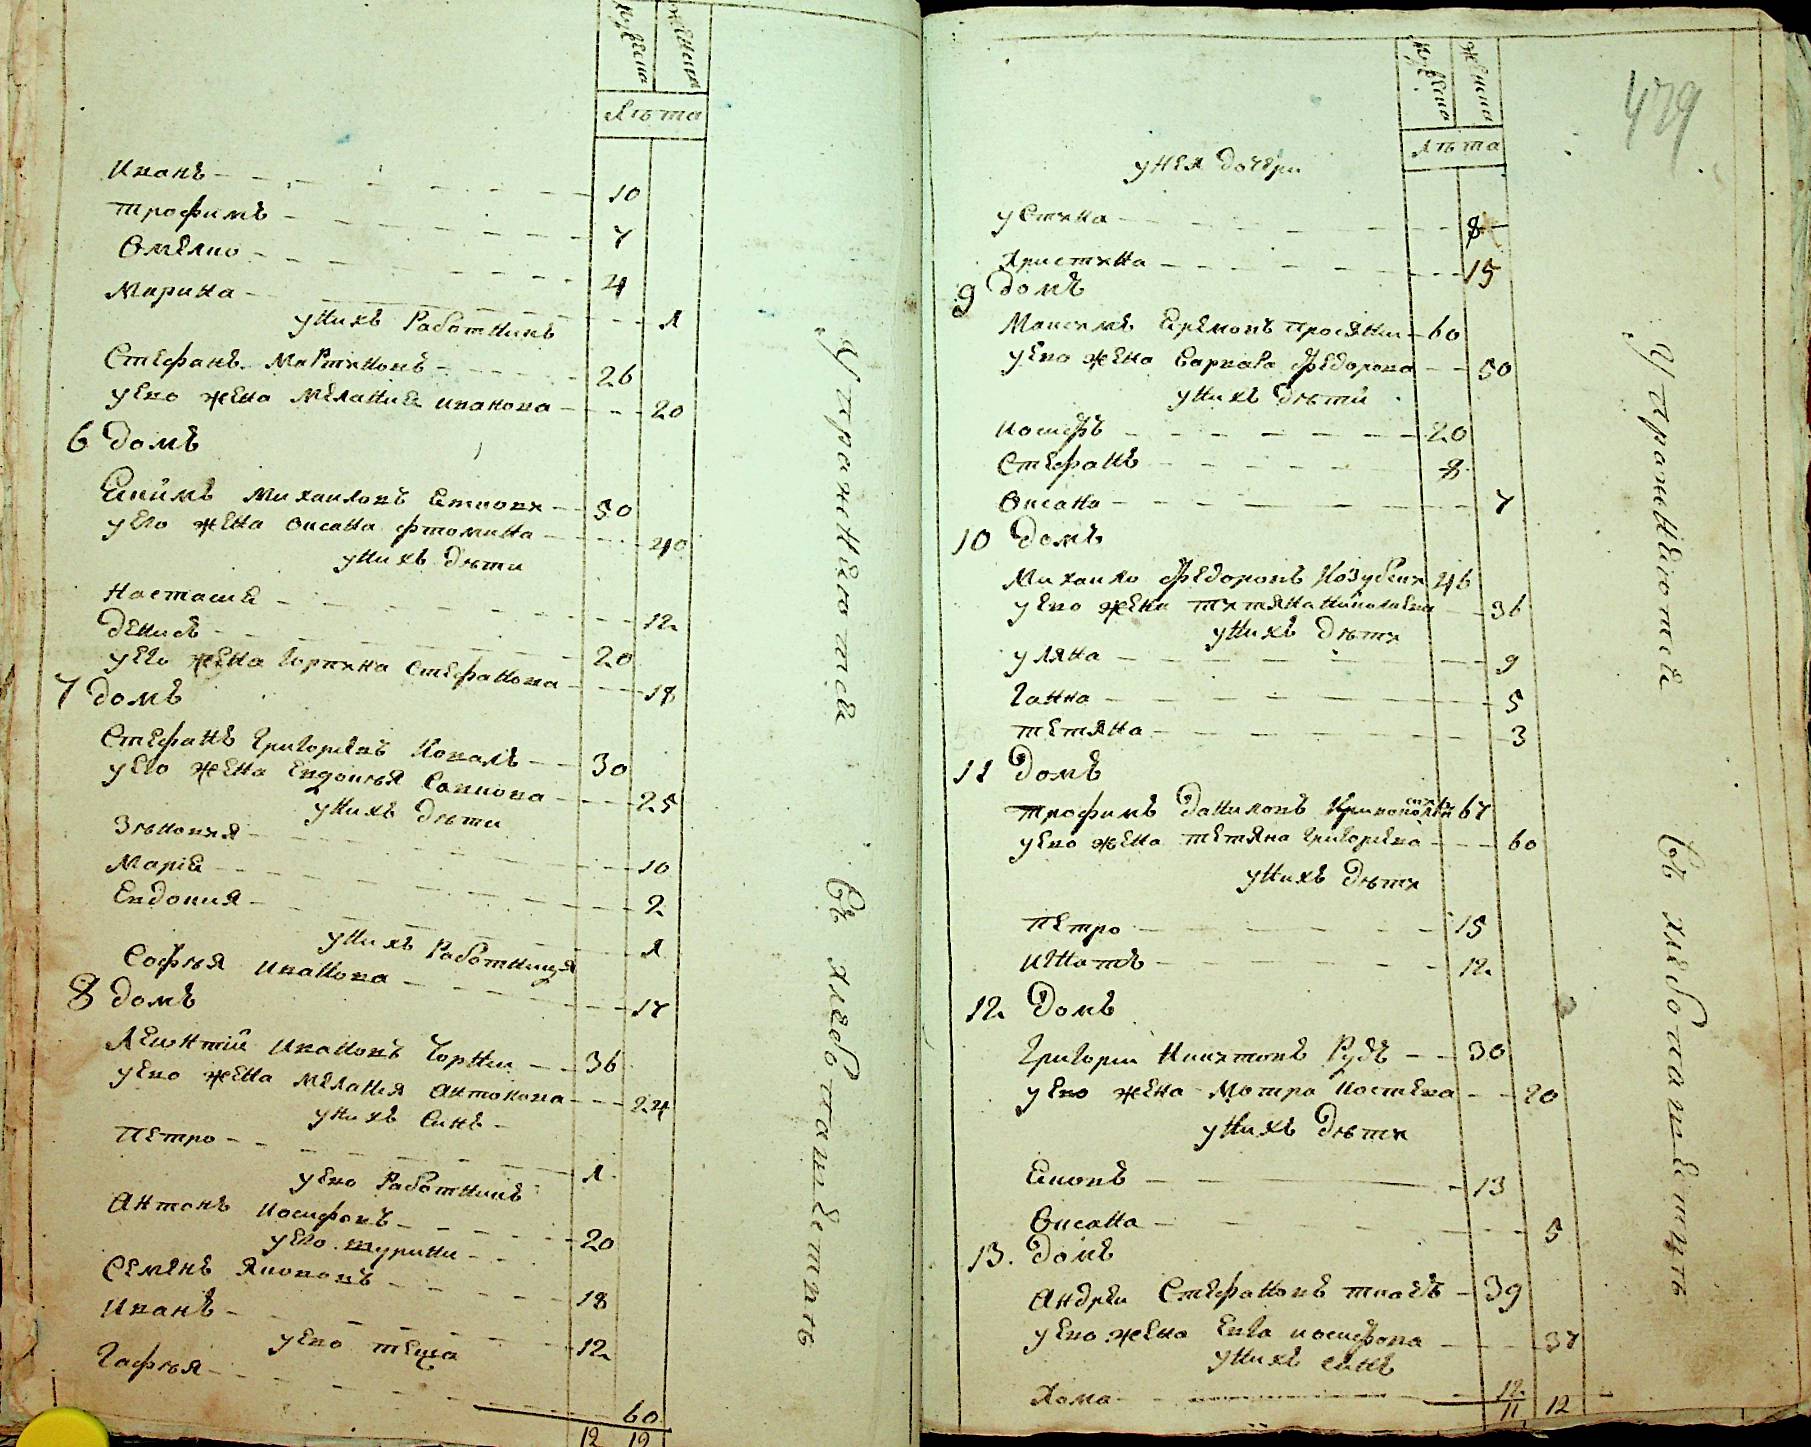 мужеска женска
лѣта
Иванъ 10
Трофимъ 7
Омелко 4
Марина 1
у нихъ работникъ
Стефанъ Мартиновъ 26
у его жена Мелания Иванова 20
6 домъ
Екимъ Михаиловъ 50
у его жена Оксана 40
у нихъ дѣти
Настасия 12
Денисъ 20
у его жена Горпина Стефанова 18
7 домъ
Стефанъ Григориевъ Коваль 30
у его жена Евдокѣя Савкова 25
у нихъ дѣти
Зѣновия 10
Мария 2
Евдокия 1
у нихъ работница
Софѣя Иванова 17
8 домъ
Леонтий Ивановъ Чорни 36
у его жена Мелания Антонова 24
у нихъ синъ
Петро 1
у его работникъ
Антонъ Иосифовъ 20
у его шурини
Семенъ Якововъ 18
Иванъ 12
у его теща
Гафѣя 60
12 12
Упражняются въ хлебопашестве
479
мужеска женска
лѣта
у нея дочери
Устина 8
Христина 15
9 домъ
Максимъ Еремовъ 60
у его жена Варвара Федорова 50
у нихъ дѣти
Иосифъ 20
Стефанъ 8
Оксана 7
10 домъ
Михаило Федоровъ 46
у его жена Титяна Николаева 36
у нихъ дѣти
Уляна 9
Ганна 5
Тетяна 3
11 домъ
Трофимъ Даниловъ 67
у его жена Тетяна Григорева 60
у нихъ дѣти
Петро 15
Игнатъ 12
12 домъ
Григории Никитовъ Рудъ 30
у его жена Мотра Костева 20
у нихъ дѣти
Яковъ 13
Оксана 5
13. домъ
Андреи Стефановъ Ткачъ 39
у его жена Евва Иосифова 37
у нихъ синъ
Хома 12
11 12
Упражняются въ хлебопашестве